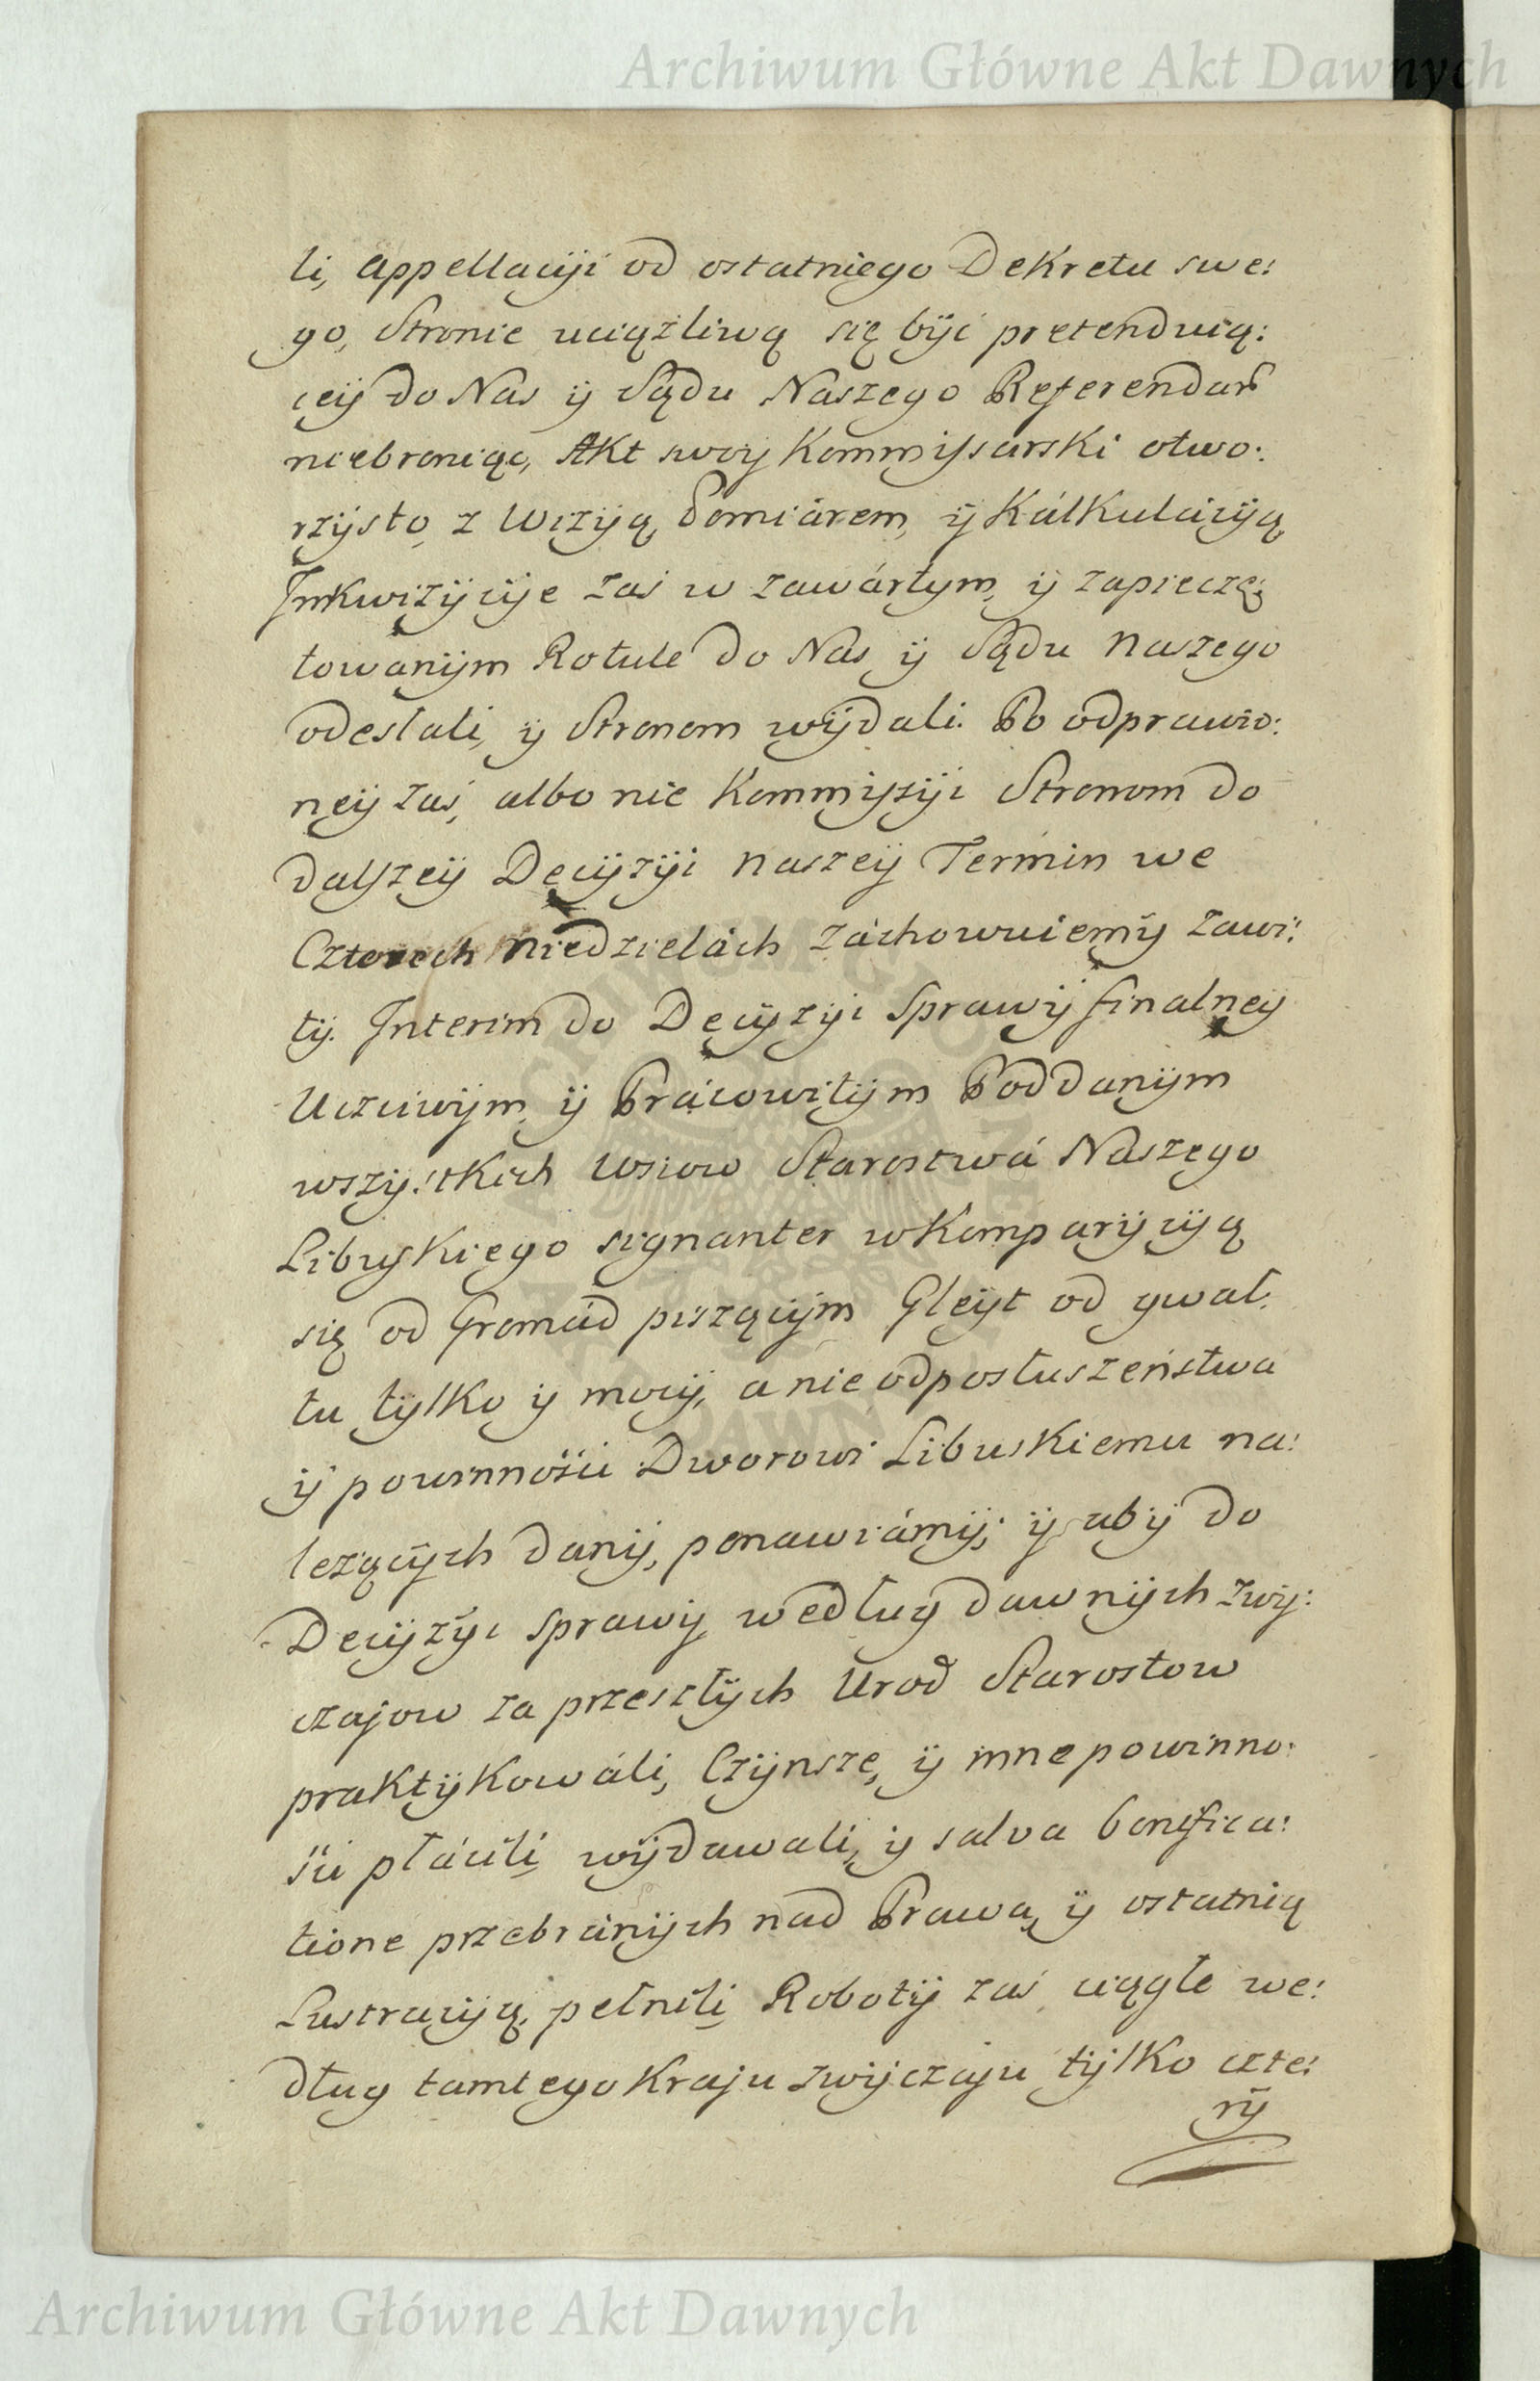 Archiwum Główne Akt Dawnych
li, Appellacÿi od ostatniego Dekretu swe:
go, Stronie uciążliwą się bÿć pretenduią:
ceÿ do Nas ÿ Sądu Naszego Referendar
niebroniąc, Akt swoÿ Kommissarski otwo:
rzÿsto z Wizÿą, Pomiárem, ÿ Kálkulácÿą
Inkwizÿcÿe zaś w zawártym, ÿ zapieczę:
towanÿm Rotule do Nas ÿ Sądu Naszego
odesłali, ÿ Stronom wÿdali. Po odprawio:
neÿ zaś, albo nie Kommissÿi Stronom do
dalszeÿ Decÿzÿi Naszeÿ Termin we
Czterech Niedzielách záchowuiemÿ zawi:
tÿ. Interim do Decÿzÿi Sprawÿ finalneÿ
Uczciwÿm ÿ Prácowitÿm Poddanÿm
wszÿstkich Wsiow Starostwá Naszego
Libuskiego signanter w Komparÿcÿą
się od Gromád piszącÿm Gleÿt od gwał:
tu tÿlko ÿ mocÿ, a nie od posłuszeństwa
ÿ powinnośći Dworowi Libuskiemu na:
leżącÿch danÿ, ponawiámÿ; ÿ abÿ do
Decÿzÿi Sprawÿ według dawnÿch zwÿ:
czajow za przeszłÿch Urod Starostow
praktÿkowáli, Czÿnsze, ÿ inne powinno:
śći płáćili wÿdawali, ÿ salva bonifica:
tione przebránÿch nad Prawa, ÿ ostatnią
Lustracÿą, pełnili Robotÿ zaś ciągłe we:
dług tamtego Kraju zwÿczaju tÿlko czte:
rÿ
Archiwum Główne Akt Dawnych